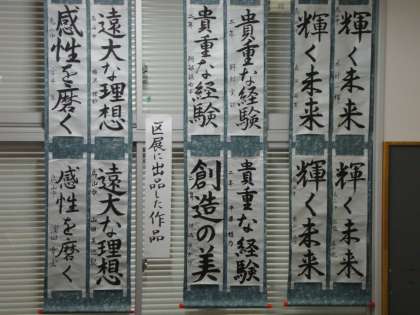 輝く未来
輝く未来
輝く未来
輝く未来
貴重な経験
貴重な経験
貴重な経験
創造の美
区展に出品した作品
遠大な理想
感性を磨く
遠大な理想
感性を磨く